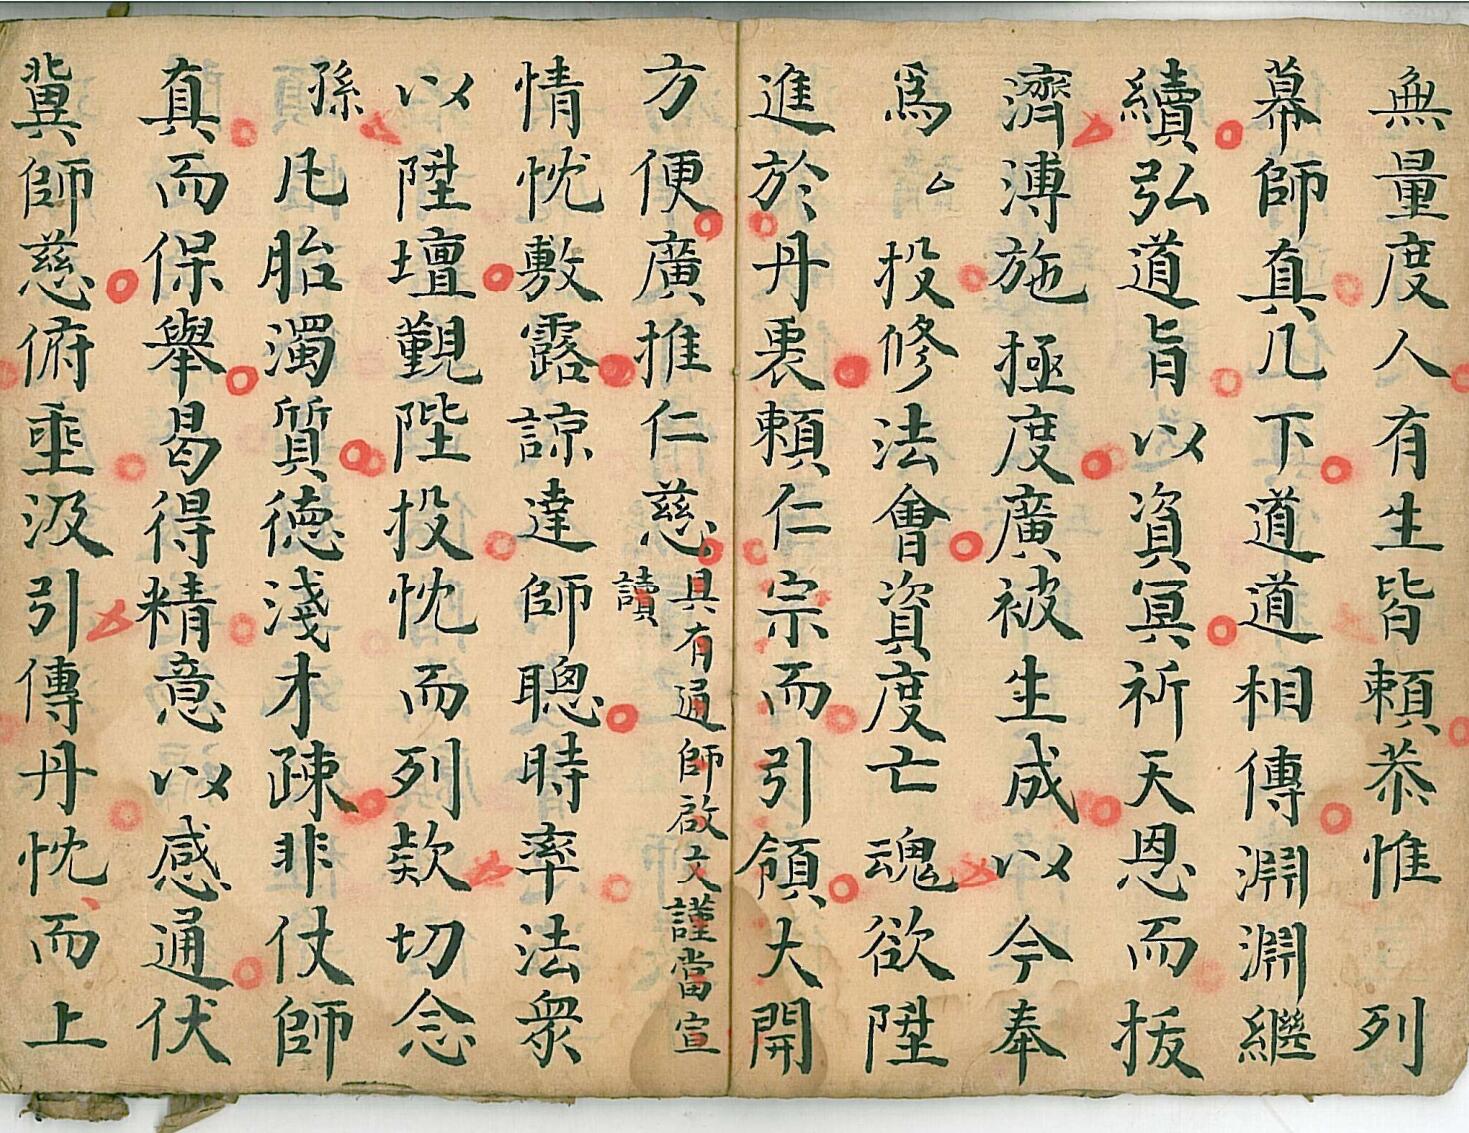 無量度人有生皆賴恭惟　列
幕師真几下道道相傳淵淵繼
續弘道旨以資冥祈天恩而拔
濟溥施極度廣被生成以今奉
爲厶投修法會資度亡魂欲陞
進於丹裏賴仁宗而引領大開
方便廣推仁慈具有通師啟文謹當宣
讀
情忱敷露諒達師聰時率法眾
以陞壇覲陛投忱而列欵切念
孫凡胎濁質德淺才疎非仗師
真而保舉曷得精意以感通伏
冀師慈俯垂汲引傳丹忱而上